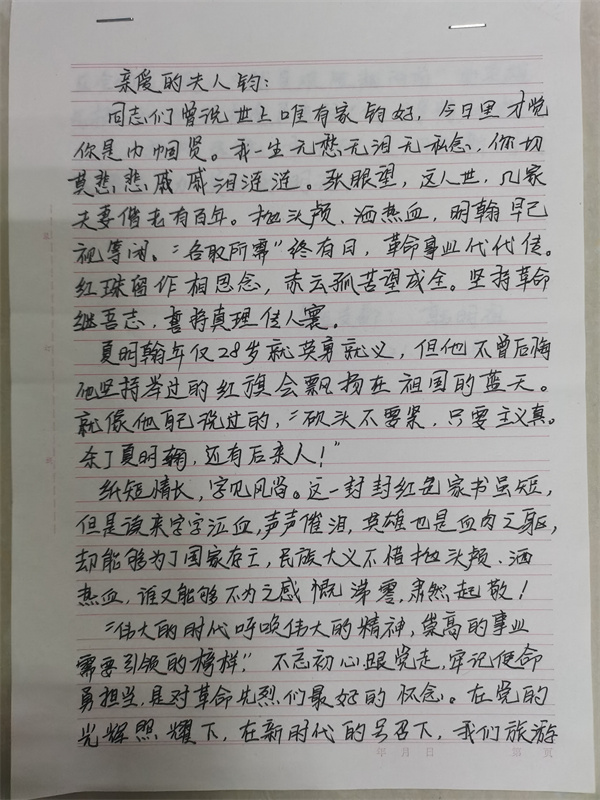 亲爱的夫人钧：
同志们曾说世上唯有家钧好，今日里才觉
你是巾帼贤。我一生无愁无泪无私念，你切
莫悲悲戚戚泪涟涟。张眼望，这人世，几家
夫妻偕老有百年。抛头颅、洒热血，明翰早已
视等闲。“各取所需”终有日，革命事业代代传。
红珠留作相思念，赤云孤苦望成全。坚持革命
继吾志，誓将真理传人寰。
夏明翰年仅28岁就英勇就义，但他不曾后悔
他坚持举过的红旗会飘扬在祖国的蓝天。
就像他自己说过的，“砍头不要紧，只要主义真。
杀了夏明翰，还有后来人！”
纸短情长，字见风骨。这一封封红色家书虽短，
但是读来字字泣血，声声催泪，英雄也是血肉之躯，
却能够为了国家存亡，民族大义不惜抛头颅、洒
热血，谁又能够不为之感慨涕零，肃然起敬！
“伟大的时代呼唤伟大的精神，崇高的事业
需要引领的榜样”！不忘初心跟党走，牢记使命
勇担当，是对革命先烈们最好的怀念。在党的
光辉照耀下，在新时代的号召下，我们旅游
年 月 日 第 页